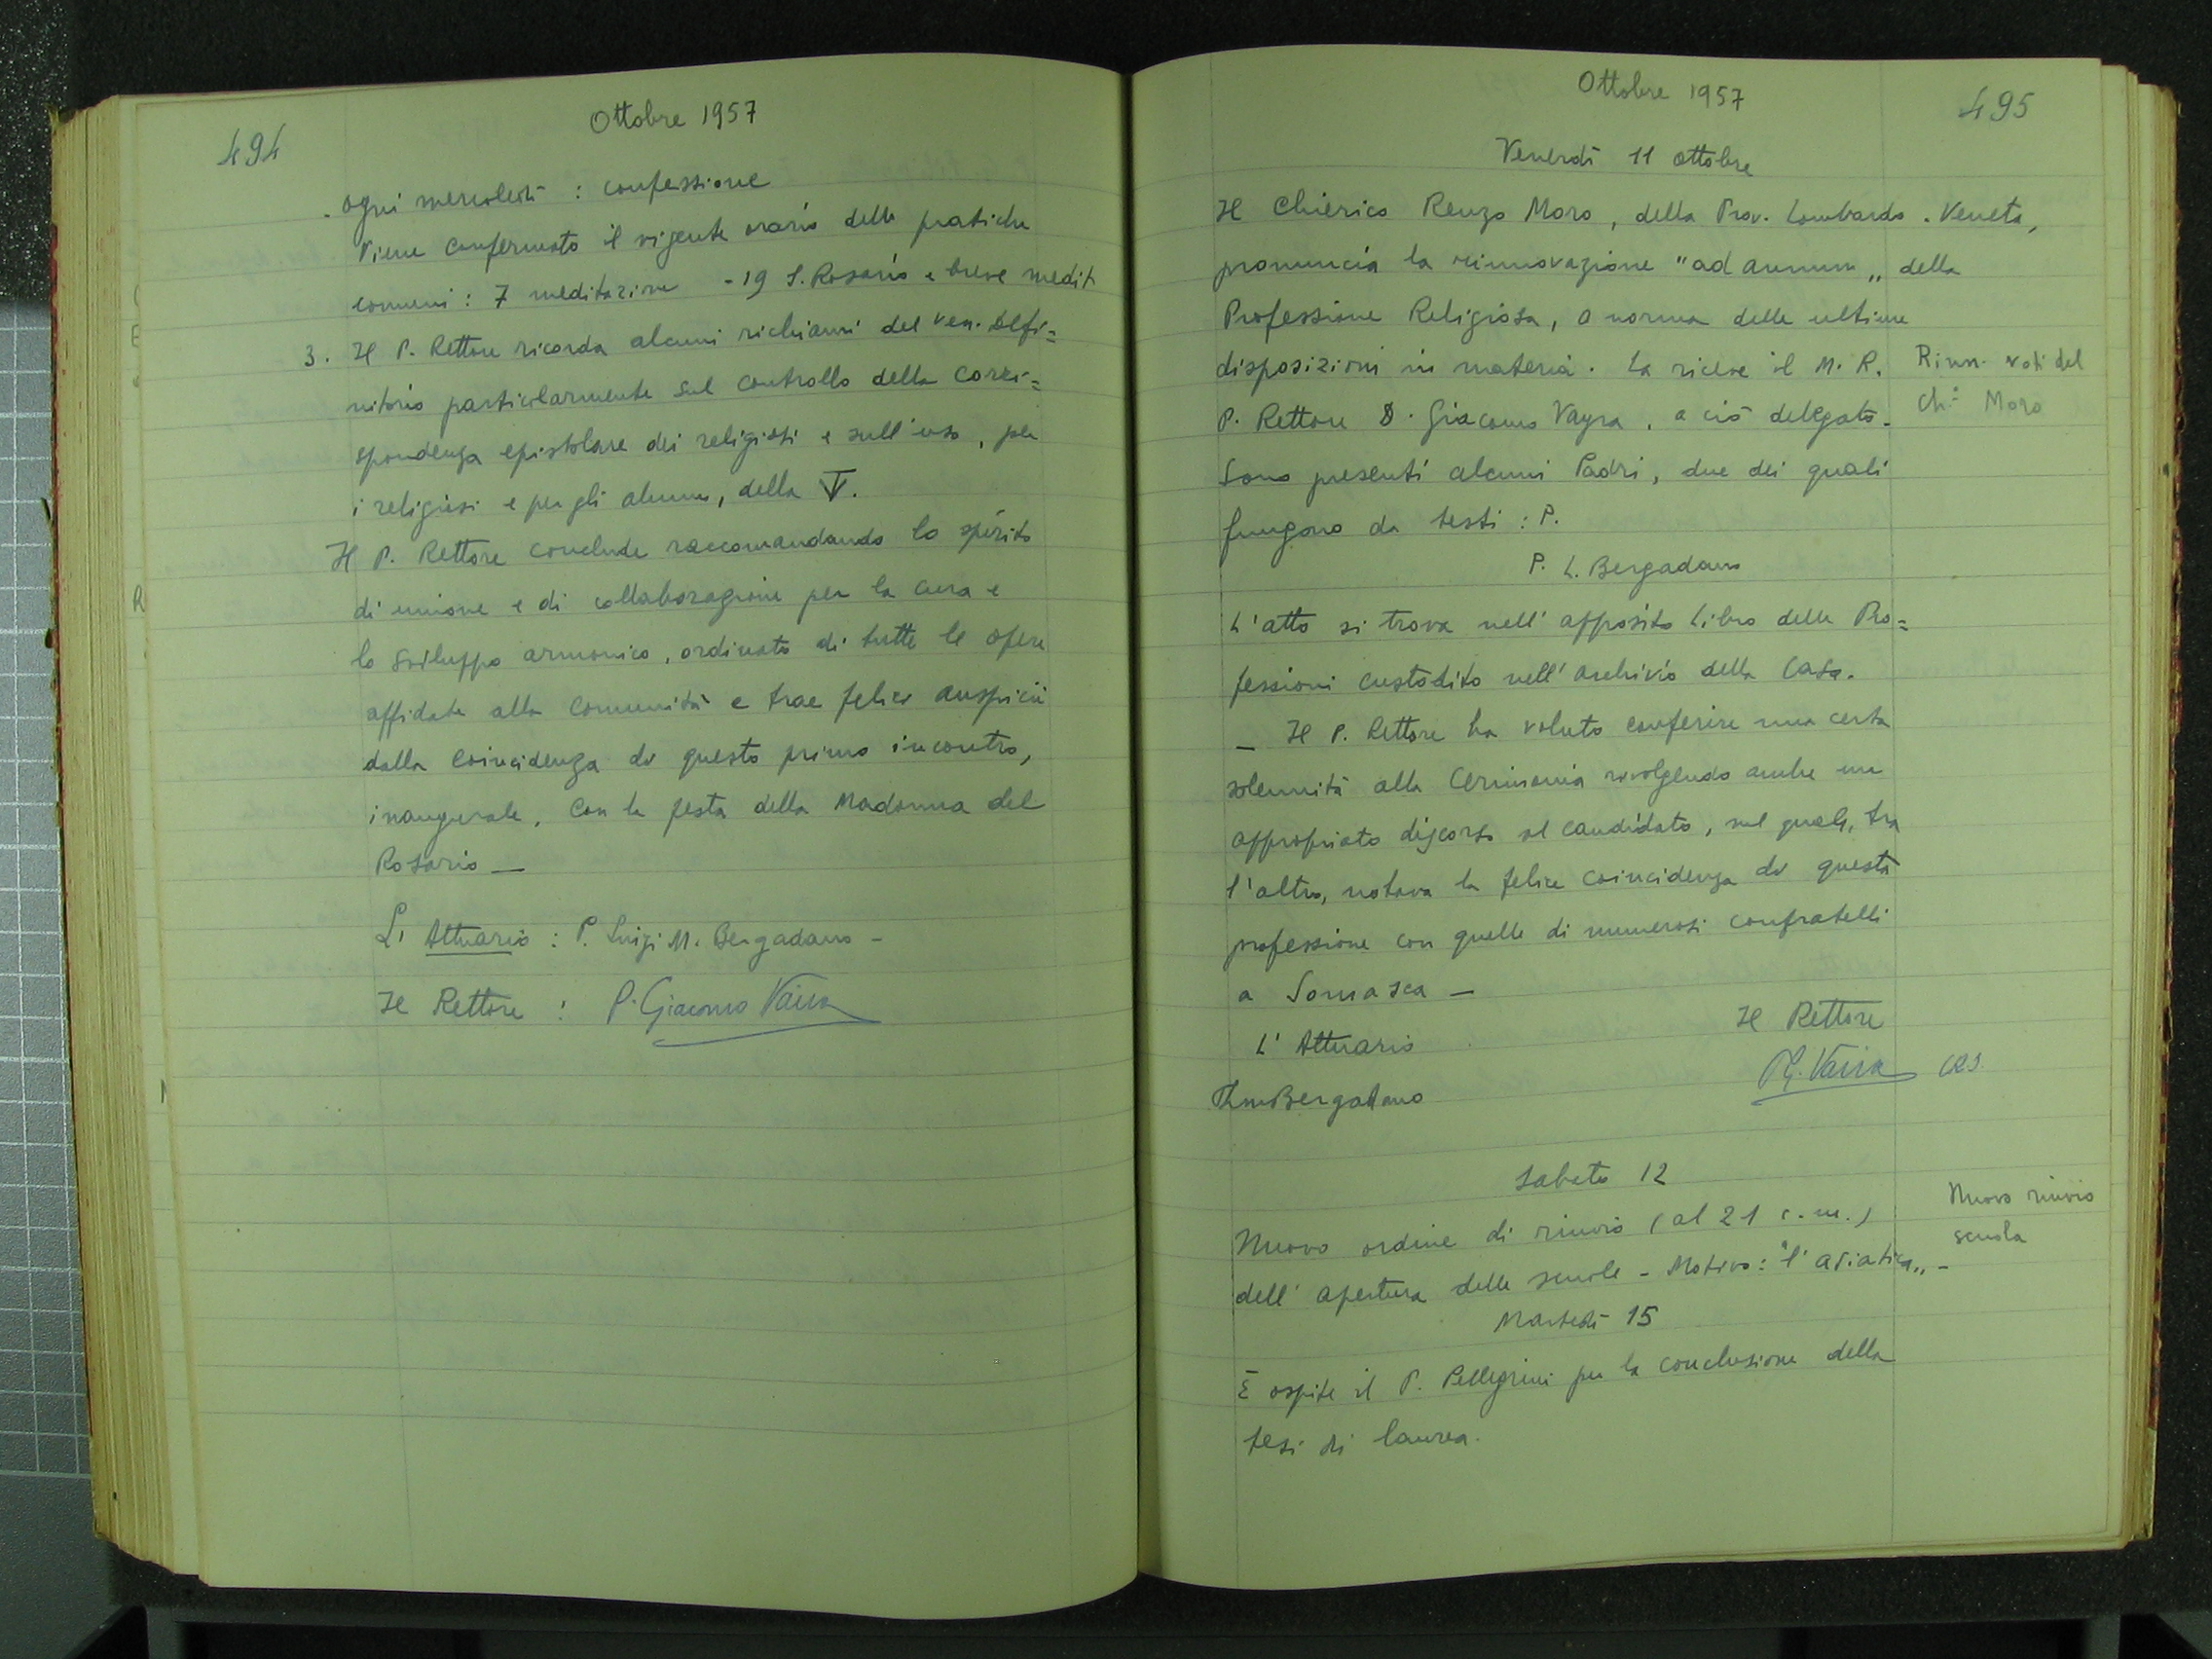 494
Ottobre 1957
- ogni mercoledì : confessione
Viene confermato il vigente orario delle pratiche
comuni : 7 meditazione - 19 S. Rosario e breve medit
3. Il P. Rettore ricorda alcuni richiami del Ven. Defi=
nitorio particolarmente sul controllo della corri=
spondenza epistolare dei religiosi e sull'uso, per
i religiosi e per gli alunni, della TV.
Il P. Rettore conclude raccomandando lo spirito
di unione e di collaborazione per la cura e
lo sviluppo armonico, ordinato di tutte le opere
affidate alla Comunità e trae felici auspicii
dalla coincidenza di questo primo incontro,
inaugurale, con la festa della Madonna del
Rosario —
L' Attuario : P. Luigi M. Bergadano -
Il Rettore : P. Giacomo Vaira
Ottobre 1957
495
Venerdì 11 ottobre
Il Chierico Renzo Moro, della Prov. Lombardo - Veneta,
pronuncia la rinnovazione "ad annum„ della
Professione Religiosa, a norma delle ultime
disposizioni in materia. La riceve il M. R.
P. Rettore D. Giacomo Vayra, a ciò delegato.
Rinn. voti del
Ch.º Moro
Sono presenti alcuni Padri, due dei quali
fungono da testi : P.
P. L. Bergadano
L'atto si trova nell'apposito Libro delle Pro=
fessioni custodito nell'archivio della Casa.
— Il P. Rettore ha voluto conferire una certa
solennità alla Cerimonia rivolgendo anche un
appropriato discorso al candidato, nel quale, tra
l'altro, notava la felice coincidenza di questa
professione con quelle di numerosi confratelli
a Somasca —
Il Rettore
L' Attuario
P. G. Vaira crs.
P. L. M. Bergadano
Sabato 12
Nuovo ordine di rinvio (al 21 c. m.)
dell' apertura delle scuole - Motivo: "l'asiatica„ -
Nuovo rinvio
scuola
Martedì 15
È ospite il P. Pellegrini per la conclusione della
tesi di laurea.